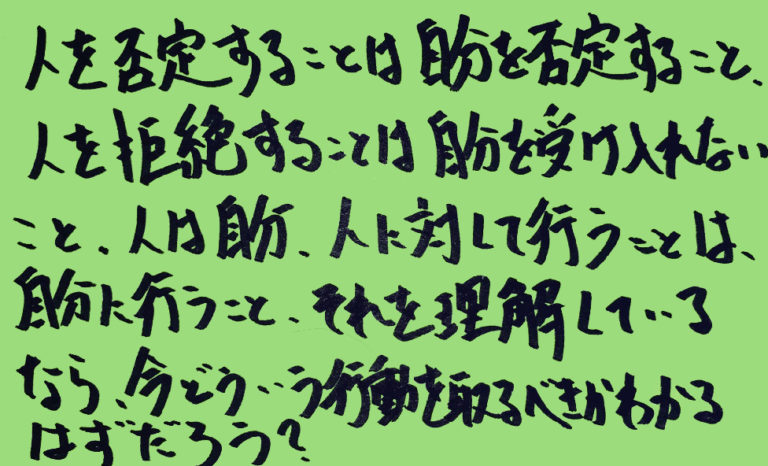 人を否定することは自分を否定すること、
人を拒絶することは自分を受け入れない
こと、人は自分、人に対して行うことは、
自分に行うこと、それを理解している
なら、今どういう行動を取るべきかわかる
はずだろう?